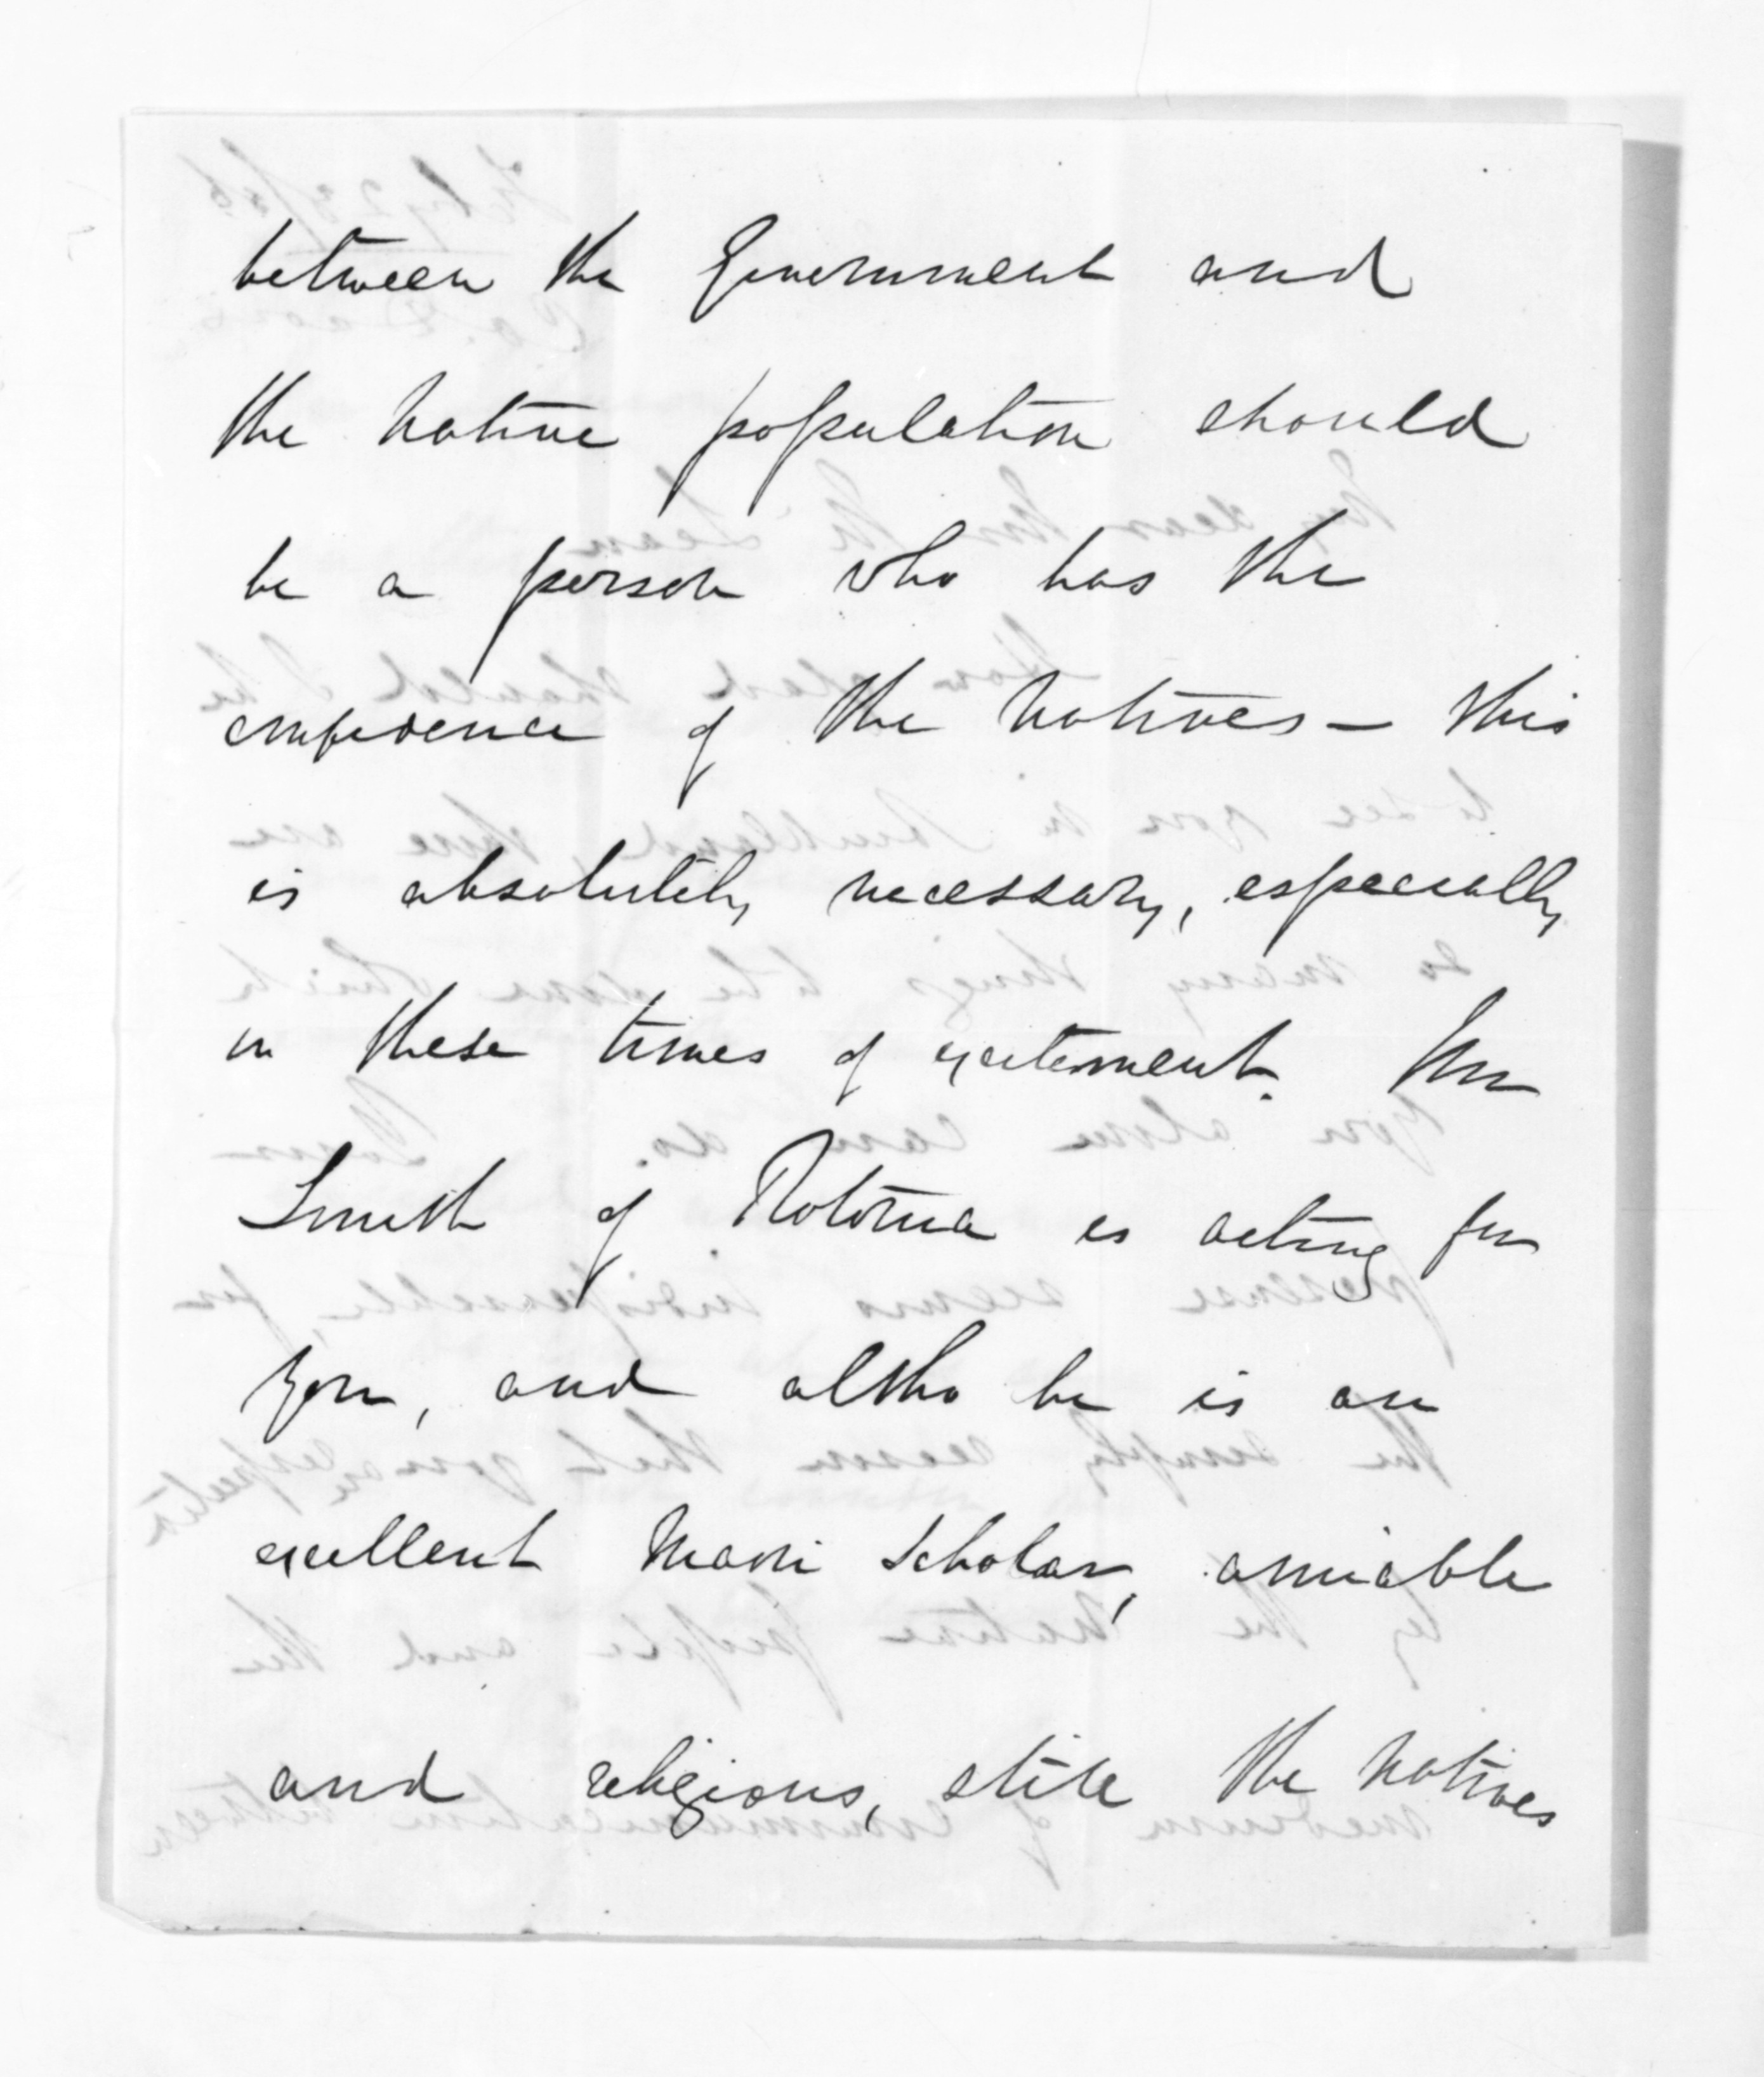 between the Government and
the Native population should
be a person who has the
confidence of the Natives - this
is absolutely necessary, especially
in these times of excitement. Mr
Smith of Rotorua is acting for
you, and altho he is an
excellent Maori Scholar, amiable
and religious, still the Natives